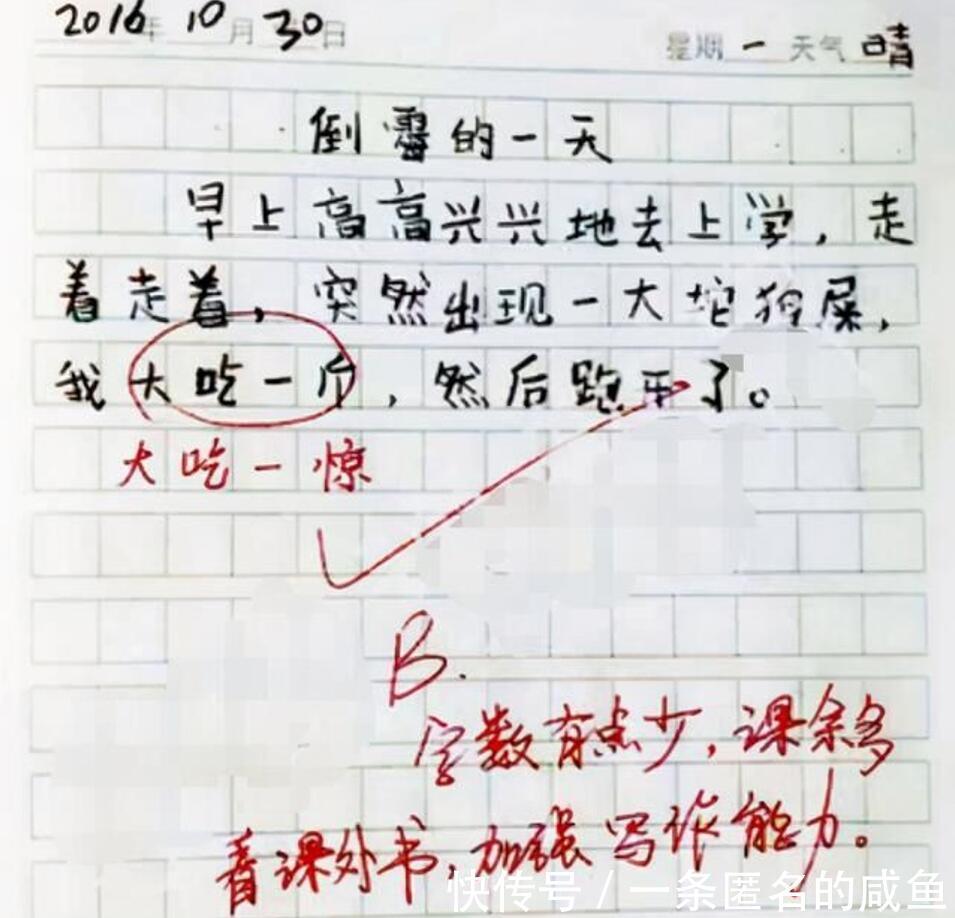 2016年 10月 30日 星期 一 天气 晴
倒霉的一天
早上高高兴兴地去上学，走
着走着，突然出现一大坨狗屎，
我大吃一斤，然后跑开了。
大吃一惊
B.
字数有点少，课余多
看课外书，加强写作能力。
快传号 / 一条匿名的咸鱼